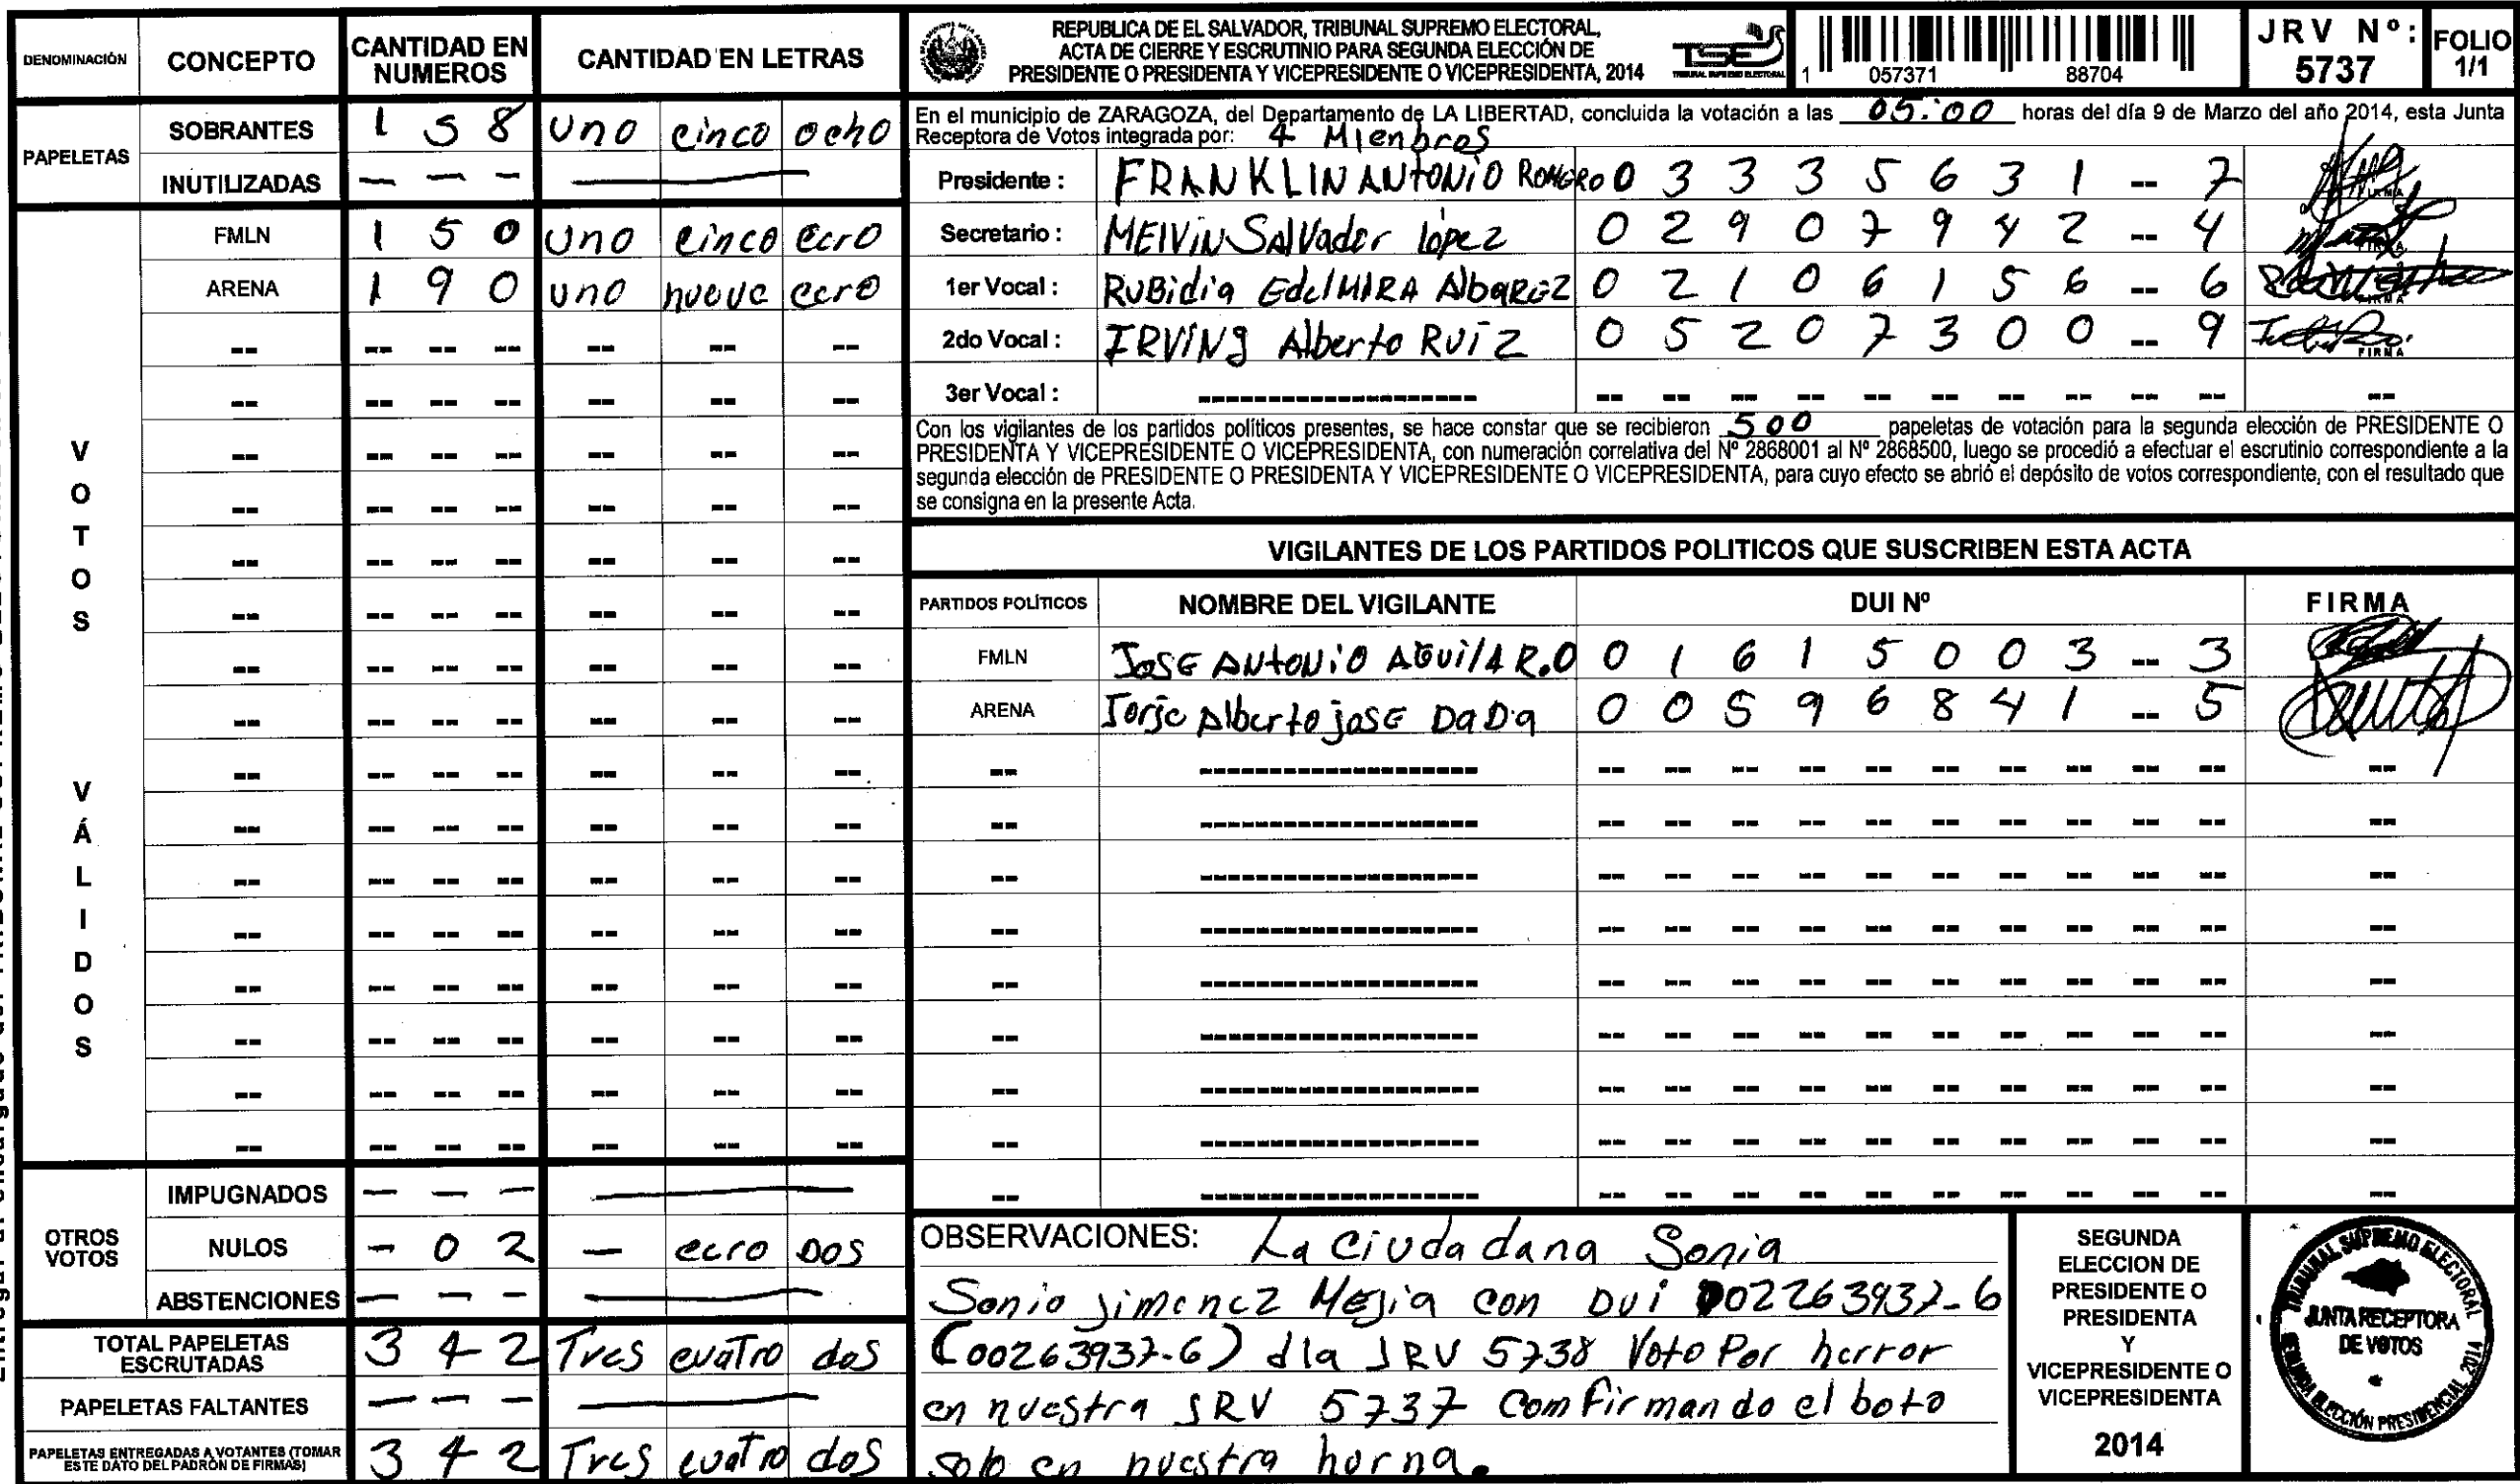 DENOMINACIÓN CONCEPTO CANTIDAD EN NUMEROS CANTIDAD EN LETRAS
PAPELETAS
SOBRANTES 1 5 8 uno cinco ocho
INUTILIZADAS — — —
VOTOS VÁLIDOS
FMLN 1 5 0 uno cinco cero
ARENA 1 9 0 uno nueve cero
OTROS VOTOS
IMPUGNADOS — — —
NULOS - 0 2 — cero DOS
ABSTENCIONES — — —
TOTAL PAPELETAS ESCRUTADAS 3 4 2 Tres cuatro dos
PAPELETAS FALTANTES — — —
PAPELETAS ENTREGADAS A VOTANTES (TOMAR ESTE DATO DEL PADRÓN DE FIRMAS) 3 4 2 Tres cuatro dos
REPUBLICA DE EL SALVADOR, TRIBUNAL SUPREMO ELECTORAL,
ACTA DE CIERRE Y ESCRUTINIO PARA SEGUNDA ELECCIÓN DE
PRESIDENTE O PRESIDENTA Y VICEPRESIDENTE O VICEPRESIDENTA, 2014
TSE
TRIBUNAL SUPREMO ELECTORAL
1 057371 88704
JRV Nº: 5737
FOLIO 1/1
En el municipio de ZARAGOZA, del Departamento de LA LIBERTAD, concluida la votación a las 05:00 horas del día 9 de Marzo del año 2014, esta Junta
Receptora de Votos integrada por: 4 Mienbros
Presidente : FRANKLIN ANTONIO ROMERO 0 3 3 3 5 6 3 1 -- 7
Secretario : MELVIN SAlVador lópez 0 2 9 0 7 9 4 2 -- 4
1er Vocal : RUBidia EdelMIRA AlbaREZ 0 2 1 0 6 1 5 6 -- 6
2do Vocal : IRVING Alberto RUiZ 0 5 2 0 7 3 0 0 -- 9
FIRMA
3er Vocal :
Con los vigilantes de los partidos políticos presentes, se hace constar que se recibieron 500 papeletas de votación para la segunda elección de PRESIDENTE O
PRESIDENTA Y VICEPRESIDENTE O VICEPRESIDENTA, con numeración correlativa del Nº 2868001 al Nº 2868500, luego se procedió a efectuar el escrutinio correspondiente a la
segunda elección de PRESIDENTE O PRESIDENTA Y VICEPRESIDENTE O VICEPRESIDENTA, para cuyo efecto se abrió el depósito de votos correspondiente, con el resultado que
se consigna en la presente Acta.
VIGILANTES DE LOS PARTIDOS POLITICOS QUE SUSCRIBEN ESTA ACTA
PARTIDOS POLÍTICOS NOMBRE DEL VIGILANTE DUI Nº FIRMA
FMLN JOSE ANTONIO AGUiLAR.O 0 1 6 1 5 0 0 3 -- 3
ARENA Jorje Alberto josE DaDa 0 0 5 9 6 8 4 1 -- 5
OBSERVACIONES: La Ciudadana Sonia
Sonia Jimenez Mejia con DUI 002263937-6
(00263937-6) dla JRV 5738 Voto Por herror
en nuestra JRV 5737 Comfirmando el boto
solo en nuestra horna.
SEGUNDA
ELECCION DE
PRESIDENTE O
PRESIDENTA
Y
VICEPRESIDENTE O
VICEPRESIDENTA
2014
TRIBUNAL SUPREMO ELECTORAL
JUNTA RECEPTORA
DE VOTOS
SEGUNDA ELECCIÓN PRESIDENCIAL 2014